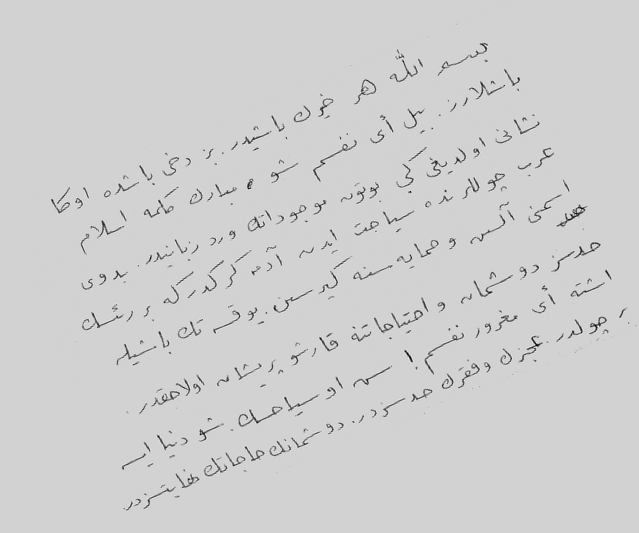 بسم الله هر خيرك باشيدر. بز دخى باشده اوكا
باشلارز. بيل أى نفسم شو مبارك كلمه اسلام
نشانى اولديغى كبى بوتون موجوداتك ورد زبانيدر. بدوى
عرب چوللرنده سياحت ايدن آدمه كركدركه بر رئيسك
اسمنى آلسين و حمايه سنه كيرسين. يوقسه تك باشيله
حدسز دوشمان و احتياجاتنه قارشو پريشان اولاجقدر.
اشته أى مغرور نفسم! سن او سياحسك. شو دنيا ايسه
بر چولدر. عجزك وفقرك حدسزدر. دوشمانك حاجاتك نهايتسزدر